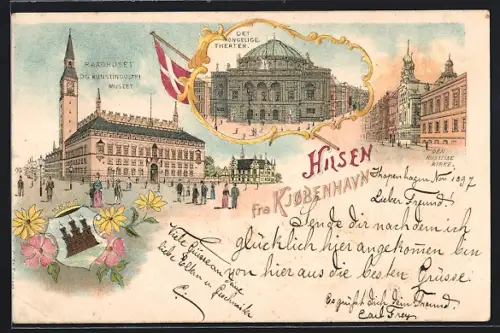 RAADHUSET
OG KUNSTINDUSTRI
MUSEET
DET
KONGELIGE
THEATER.
DEN
RUSSISKE
KIRKE.
HILSEN
fra KJØBENHAVN
Kopenhagen Nov 1897
Lieber Freund.
Sende dir nachdem ich
glücklich hier angekommen bin
von hier aus die besten Grüsse.
Es grüsst dich dein Freund
Carl Frey
Viele Grüsse an deine
liebe Eltern u Geschwister
C.